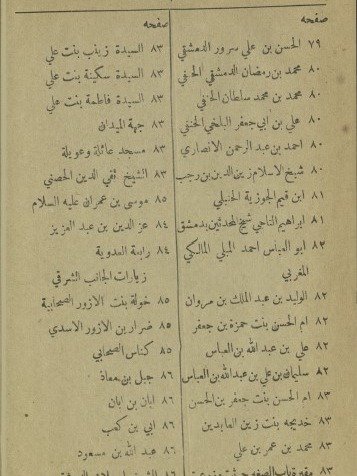 صفحه
٧٩ الحسن بن علي سرور الدمشقي
٨٠ محمد بن رمضان الدمشقي الحنفي
٨٠ محمد بن محمد سلطان الحنفي
٨٠ علي بن ابي جعفر البلخي الحنفي
٨٠ احمد بن عبد الرحمن الانصاري
٨٠ شيخ الاسلام زين الدين بن رجب
٨١ ابن قيم الجوزية الحنبلي
٨١ ابراهيم الناجي شيخ المحدثين بدمشق
٨٢ ابو العباس احمد المالكي
المغربي
٨٢ الوليد بن عبد الملك بن مروان
٨٢ ام الحسن بنت حمزة بن جعفر
٨٢ علي بن عبد الله بن العباس
٨٢ سليمان بن علي بن عبد الله بن العباس
٨٣ ام الحسن بنت جعفر بن الحسن
٨٣ خديجه بنت زين العابدين
٨٣ محمد بن عمر بن علي
٨٣
صفحه
٨٣ السيدة زينب بنت علي
٨٣ السيدة سكينة بنت علي
٨٣ السيدة فاطمة بنت علي
٨٣ جهة الميدان
٨٣ مسجد عاتكة وعويلة
٨٣ الشيخ تقي الدين الحصني
٨٥ موسى بن عمران عليه السلام
٨٤ عز الدين بن عبد العزيز
٨٤ رابعة العدوية
زيارات الجانب الشرقي
٨٥ خولة بنت الازور الصحابية
٨٥ ضرار بن الازور الاسدي
٨٥ كناس الصحابي
٨٦ جبل بن معاذ
٨٦ ابان بن ابان
٨٦ ابي بن كعب
٨٦ عبد الله بن مسعود